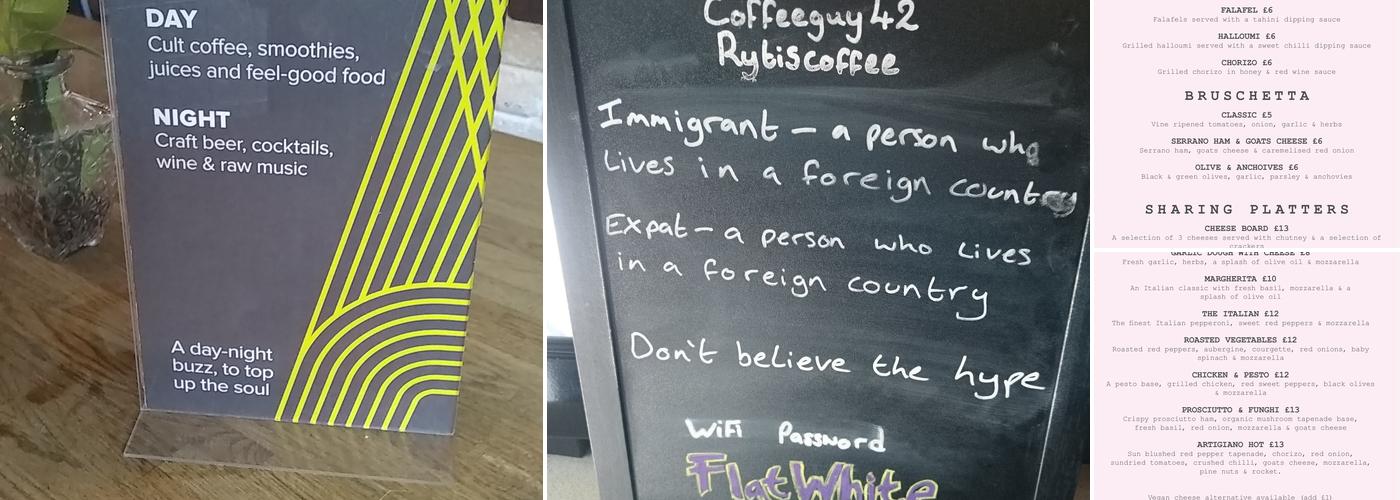 DAY
Cult coffee, smoothies,
juices and feel-good food
NIGHT
Craft beer, cocktails,
wine & raw music
A day-night
buzz, to top
up the soul
Coffeeguy42
Rytiscoffee
Immigrant – a person who
Lives in a foreign country
Expat – a person who Lives
in a foreign country
Don't believe the hype
WiFi Password
FlatWhite
FALAFEL £6
Falafels served with a tahini dipping sauce
HALLOUMI £6
Grilled halloumi served with a sweet chilli dipping sauce
CHORIZO £6
Grilled chorizo in honey & red wine sauce
BRUSCHETTA
CLASSIC £5
Vine ripened tomatoes, onion, garlic & herbs
SERRANO HAM & GOATS CHEESE £6
Serrano ham, goats cheese & caremelised red onion
OLIVE & ANCHOIVES £6
Black & green olives, garlic, parsley & anchovies
SHARING PLATTERS
CHEESE BOARD £13
A selection of 3 cheeses served with chutney & a selection of
crackers
GARLIC DOUGH WITH CHEESE £8
Fresh garlic, herbs, a splash of olive oil & mozzarella
MARGHERITA £10
An Italian classic with fresh basil, mozzarella & a
splash of olive oil
THE ITALIAN £12
The finest Italian pepperoni, sweet red peppers & mozzarella
ROASTED VEGETABLES £12
Roasted red peppers, aubergine, courgette, red onions, baby
spinach & mozzarella
CHICKEN & PESTO £12
A pesto base, grilled chicken, red sweet peppers, black olives
& mozzarella
PROSCIUTTO & FUNGHI £13
Crispy prosciutto ham, organic mushroom tapenade base,
fresh basil, red onion, mozzarella & goats cheese
ARTIGIANO HOT £13
Sun blushed red pepper tapenade, chorizo, red onion,
sundried tomatoes, crushed chilli, goats cheese, mozzarella,
pine nuts & rocket.
Vegan cheese alternative available (add £1)